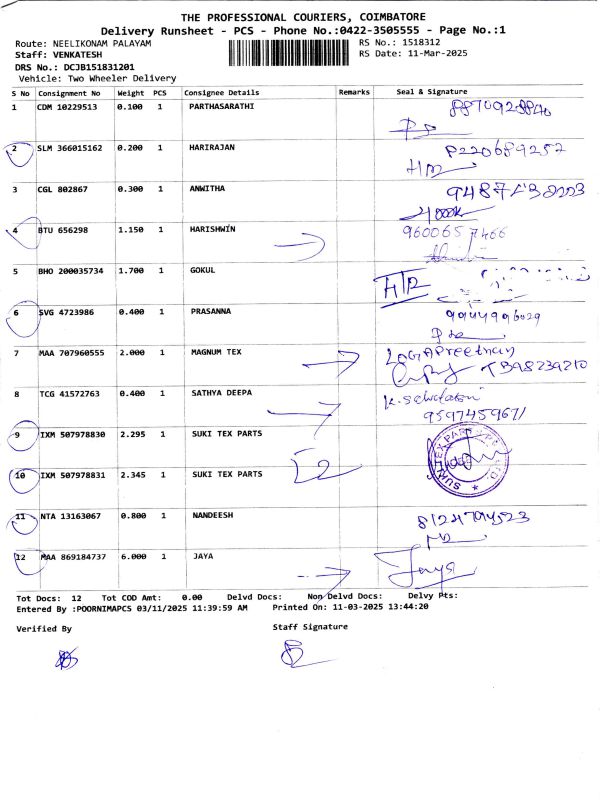 THE PROFESSIONAL COURIERS, COIMBATORE
Delivery Runsheet - PCS - Phone No.:0422-3505555 - Page No.:1
Route: NEELIKONAM PALAYAM
RS No.: 1518312
Staff: VENKATESH
RS Date: 11-Mar-2025
DRS No.: DCJB151831201
Vehicle: Two Wheeler Delivery
S No Consignment No Weight PCS Consignee Details Remarks Seal & Signature
1 CDM 10229513 0.100 1 PARTHASARATHI
2 SLM 366015162 0.200 1 HARIRAJAN P220689257
3 CGL 802867 0.300 1 ANWITHA
4 BTU 656298 1.150 1 HARISHWIN 9600657466
5 BHO 200035734 1.700 1 GOKUL
6 SVG 4723986 0.400 1 PRASANNA 9944996029
7 MAA 707960555 2.000 1 MAGNUM TEX
8 TCG 41572763 0.400 1 SATHYA DEEPA
9597459671
9 IXM 507978830 2.295 1 SUKI TEX PARTS
10 IXM 507978831 2.345 1 SUKI TEX PARTS
11 NTA 13163067 0.800 1 NANDEESH
12 MAA 869184737 6.000 1 JAYA Jaya
Tot Docs: 12 Tot COD Amt: 0.00 Delvd Docs: Non Delvd Docs: Delvy Pts:
Entered By :POORNIMAPCS 03/11/2025 11:39:59 AM Printed On: 11-03-2025 13:44:20
Verified By Staff Signature